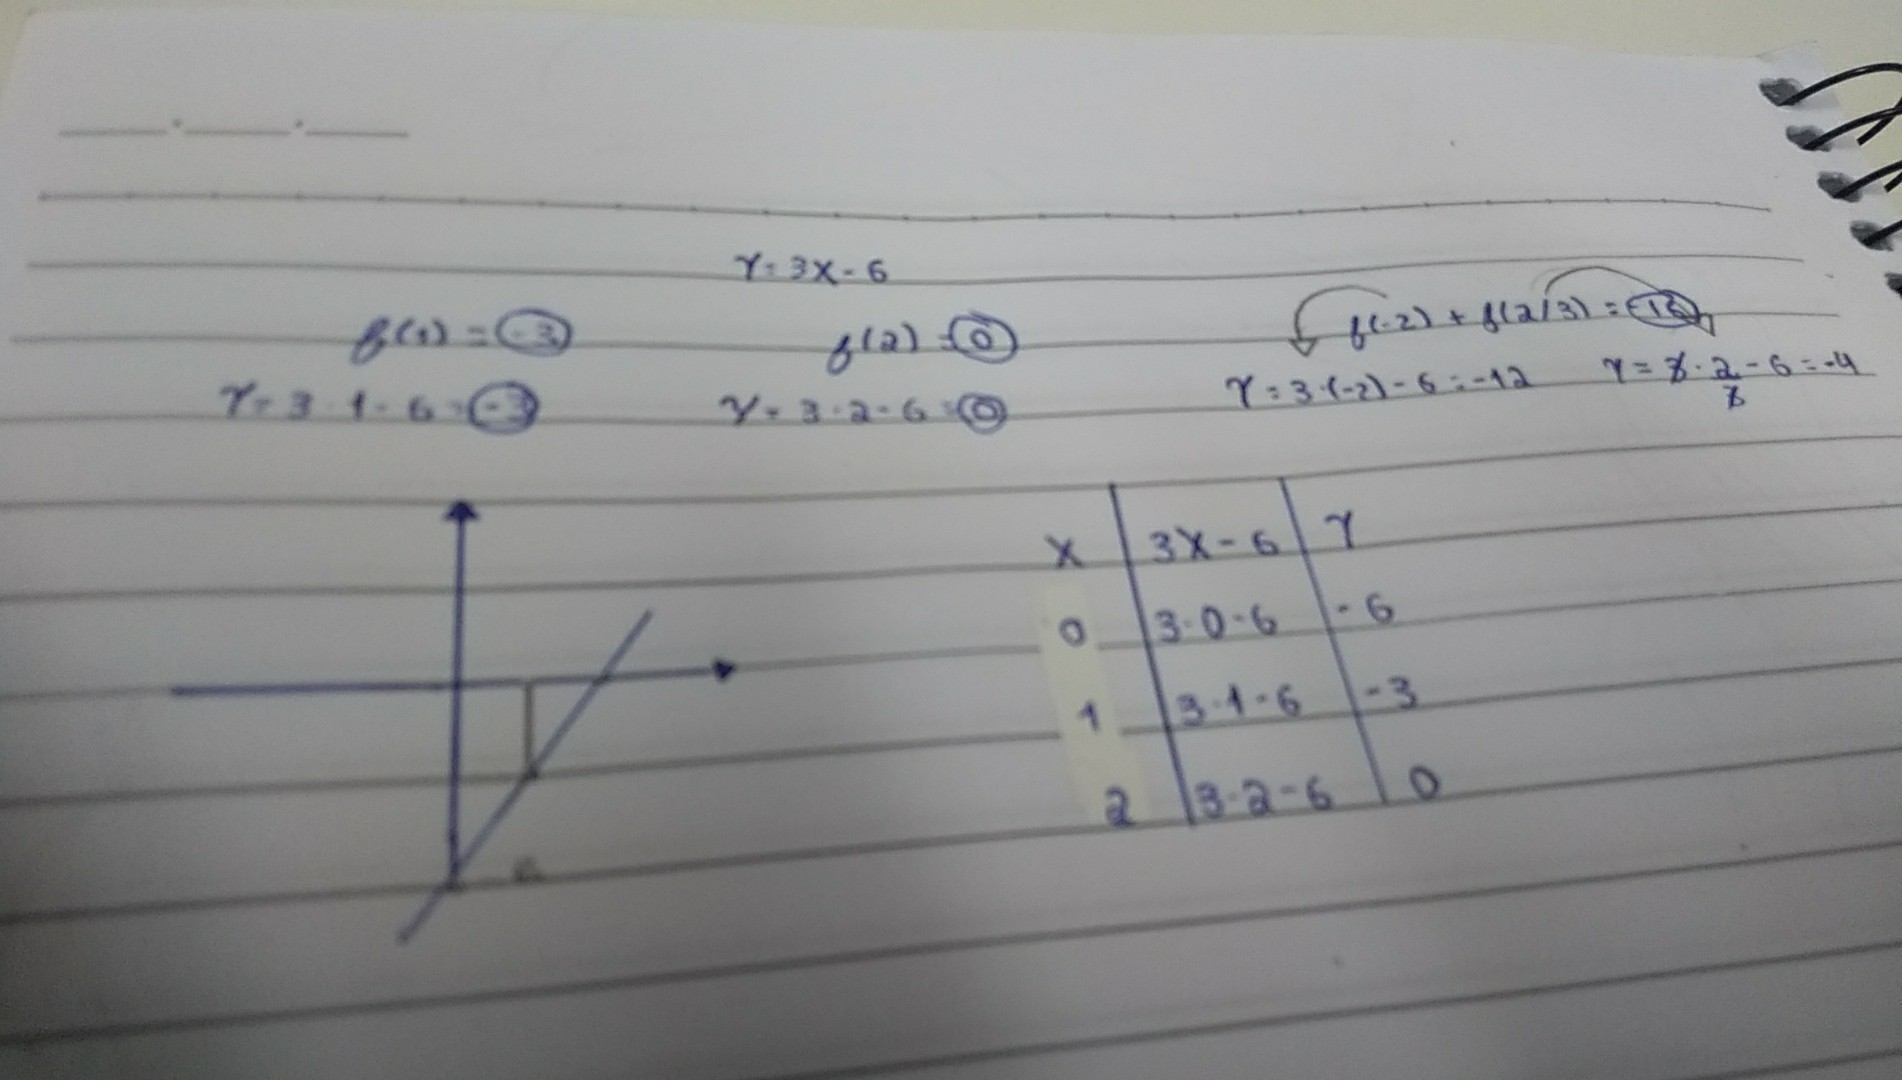 Y = 3X - 6
f(1) = -3
f(2) = 0
f(-2) + f(2/3) = -16
Y = 3 · 1 - 6 = -3
Y = 3 · 2 - 6 = 0
Y = 3 · (-2) - 6 = -12
Y = 3 · 2/3 - 6 = -4
X | 3X - 6 | Y
0 | 3 · 0 - 6 | - 6
1 | 3 · 1 - 6 | - 3
2 | 3 · 2 - 6 | 0